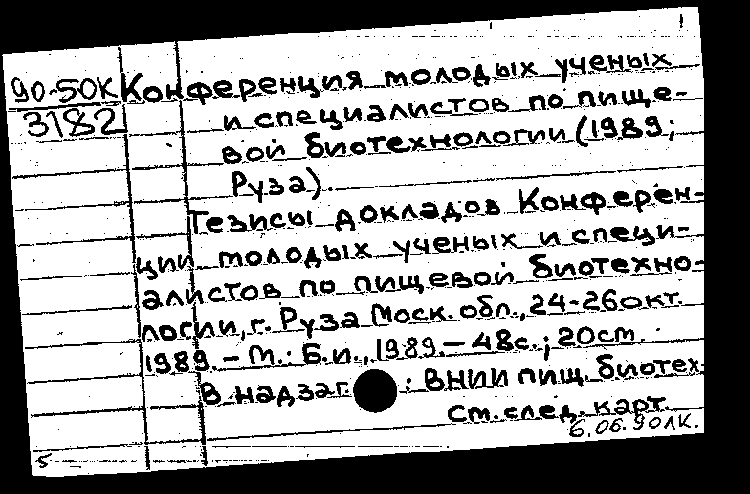 90-50К Конференция молодых ученых
3182 и специалистов по пище-
вой биотехнологии (1989;
Руза).
Тезисы докладов Конферен-
ции молодых ученых и специ-
алистов по пищевой биотехно-
логии, г. Руза Моск. обл., 24-26 окт.
1989. – М.: Б.и., 1989. – 48с.; 20см.
В надзаг.: ВНИИ пищ. биотех.
См. след. карт.
6.06.90 ЛК.
5